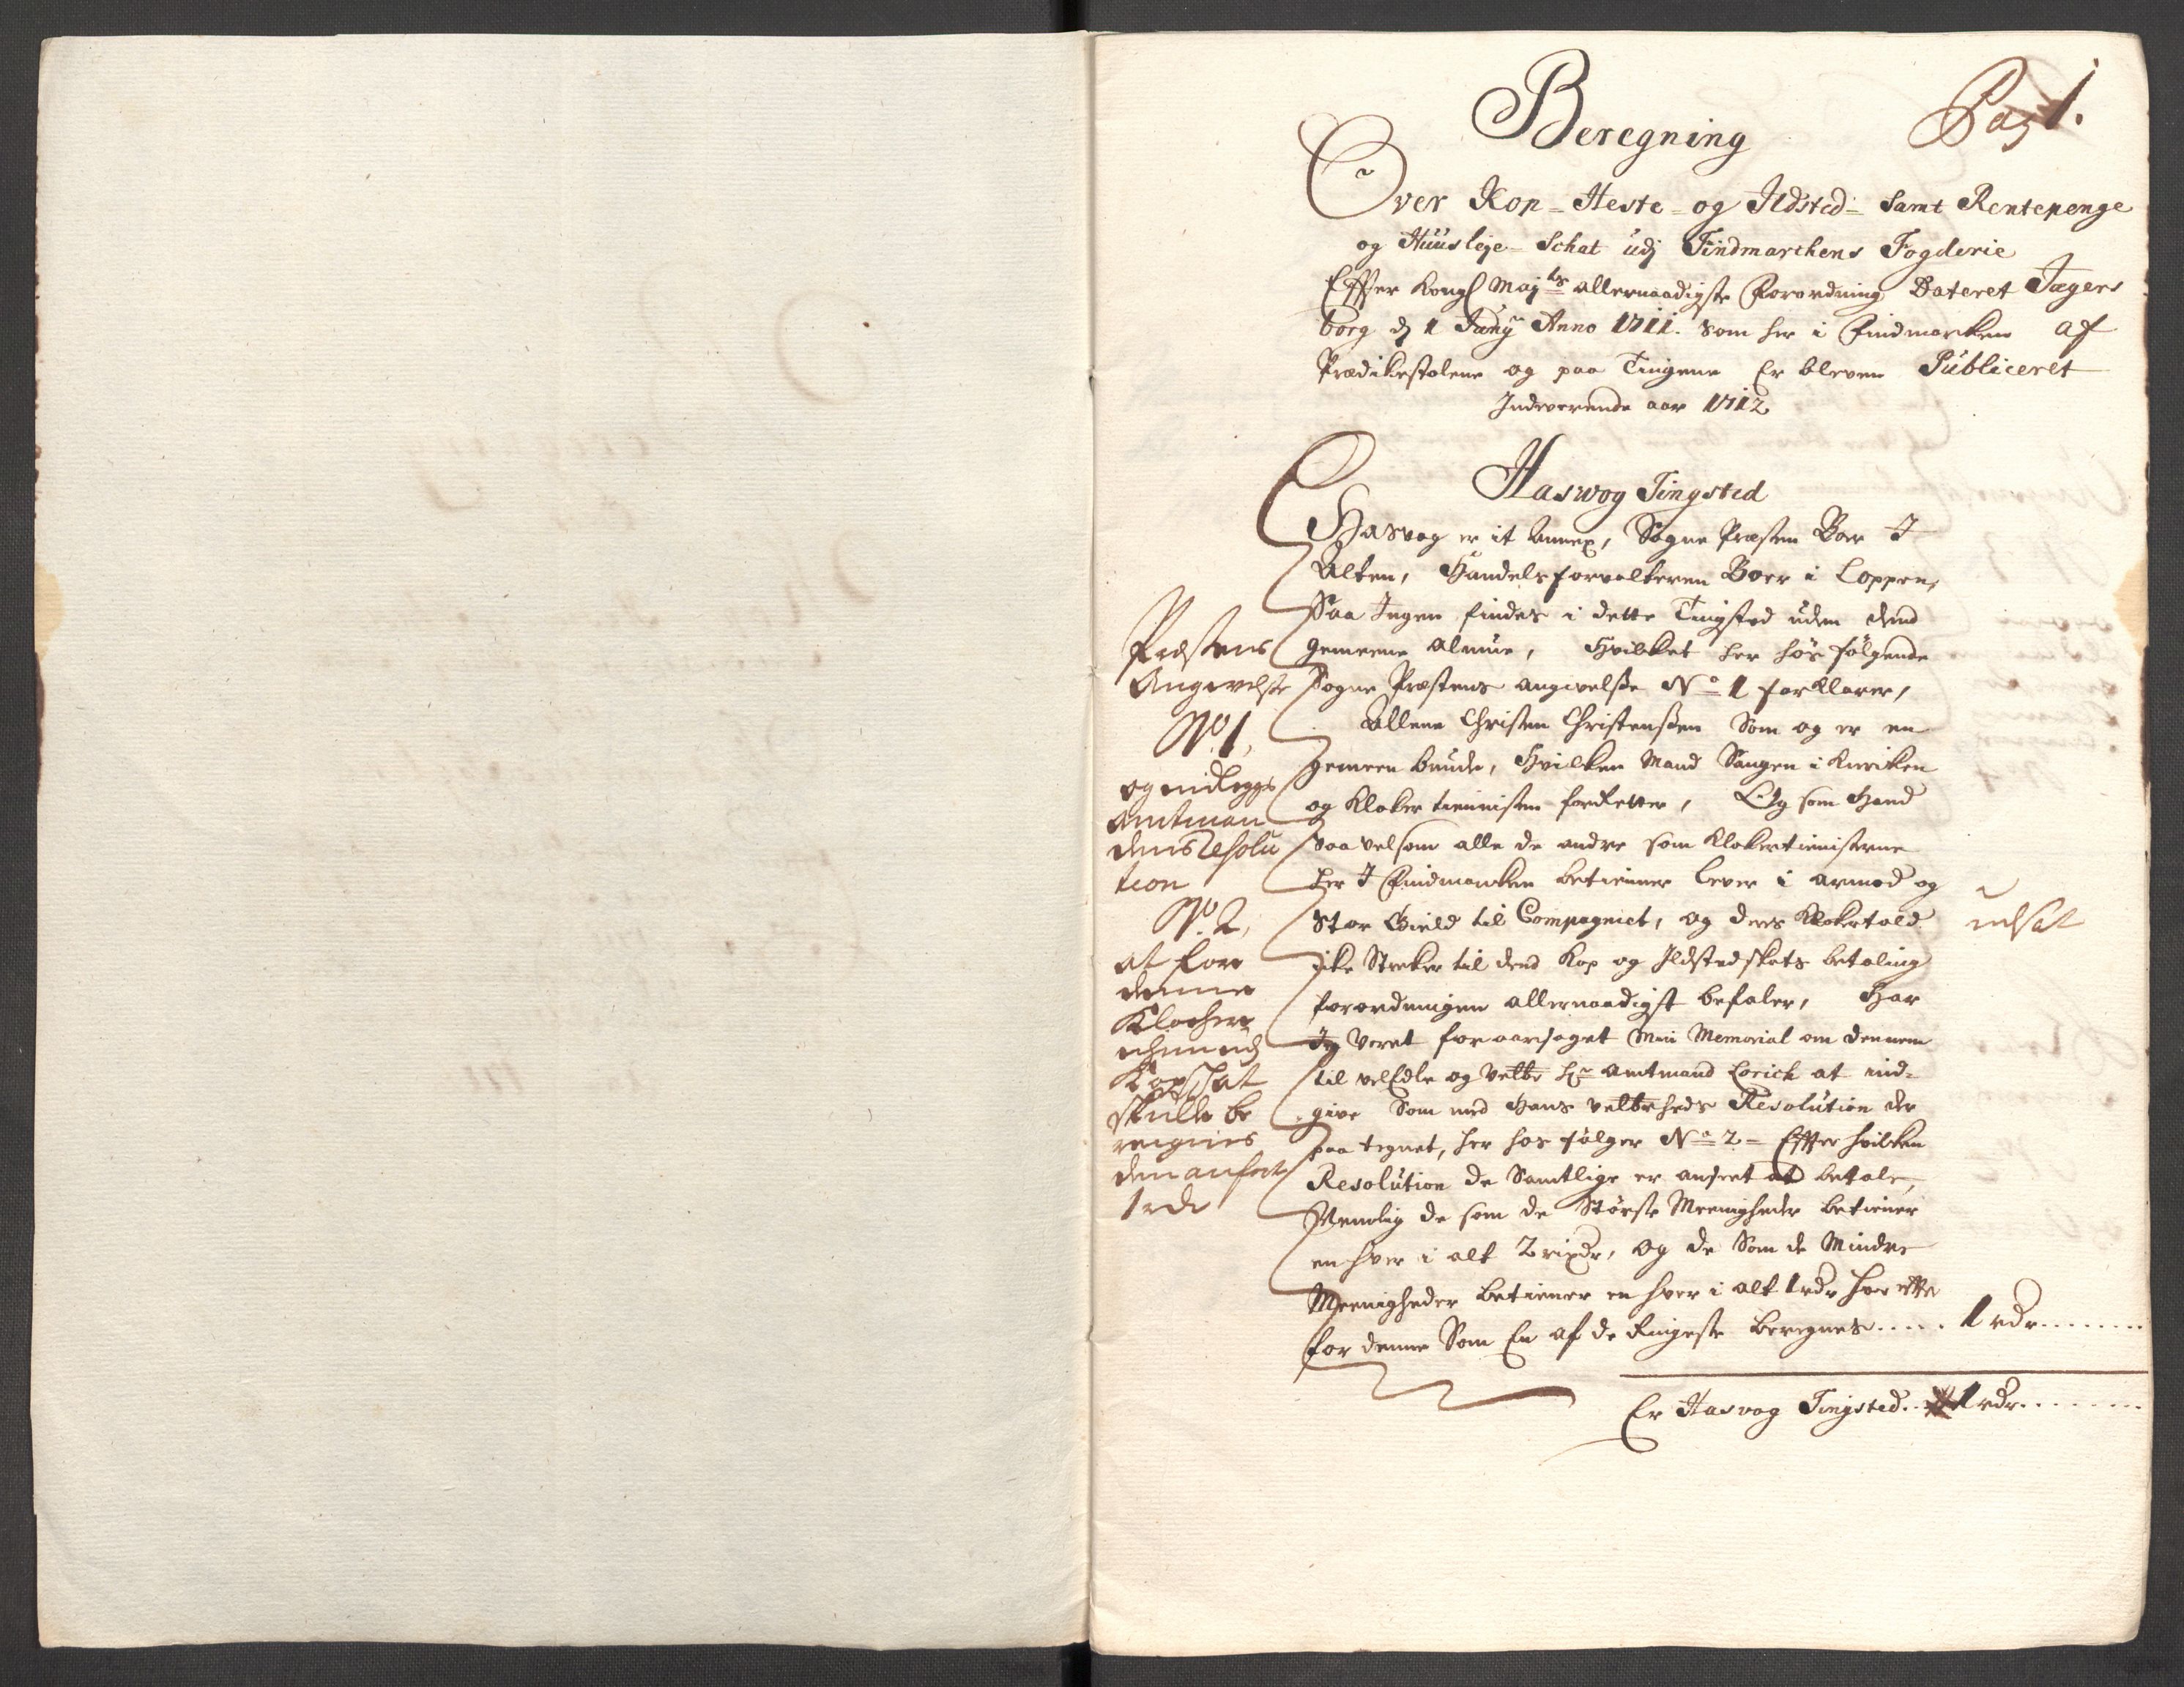 Pag 1.
Beregning
Over Kop- Heste- og Ildsted- Samt Rentepenge
og Huusleje- Schat udj Findmarchens Fogderie
Effter Kongl Maj ts allernaadigste Forordning Dateret Jæger
borg dj 1 Junij Anno 1711. Som her i Findmarken af
Prædikestolene og paa Tingene Er bleven Publiceret
Indeværende aar 1712
Haswog Tingsted
Hasvog er it Annex, Sogne Præsten Boer I
Alten, Handelsforvalteren Boer i Loppen,
Saa Ingen findes i dette Tingsted uden dend
gemeene Almue, Hvilket her hos følgende
Sogne Præstens angivelsse No 1 forklarer,
Allene Christen Christenssen Som og er en
gemeen bunde, Hvilken Mand Sangen i Kirken
og Kloker tienisten forRetter, Og som Hand
saavelsom alle de andre som Klokertienisterne
her I Findmarken betienner lever i armod og
Stor Gield til Compagniet, og deris Klokertold
ike Streker til dend Kop og Ildstedskats betaling
forordningen allernaadigst befaler, Har
Jeg Veret foraarsaget Min Memorial om dennem
til velEdle og Velbr Hr Amtmand Lorich at ind-
give Som med Hans Velbrheds Resolution der
paa tegnet, her hos følger No 2 - Effter hvilken
Resolution de Samtlige er anseet at betale,
Nemlig de som de Største Meenigheder betiener
en hver i alt 2 rixdr, og de Som de Mindre
Meenigheder betiener en hver i alt 1 rdr her
for denne Som En af de Ringeste beregnes..... 1 rdr........
Er Hasvog Tingsted... 1 rdr........
Præstens
Angivelsse
No 1,
og indlegges
Amtman
dens Resolu
tion
No 2,
at for
denne
Klocher
Kopschat
skulle be
reignes
den anførte
1 rdr
udsat